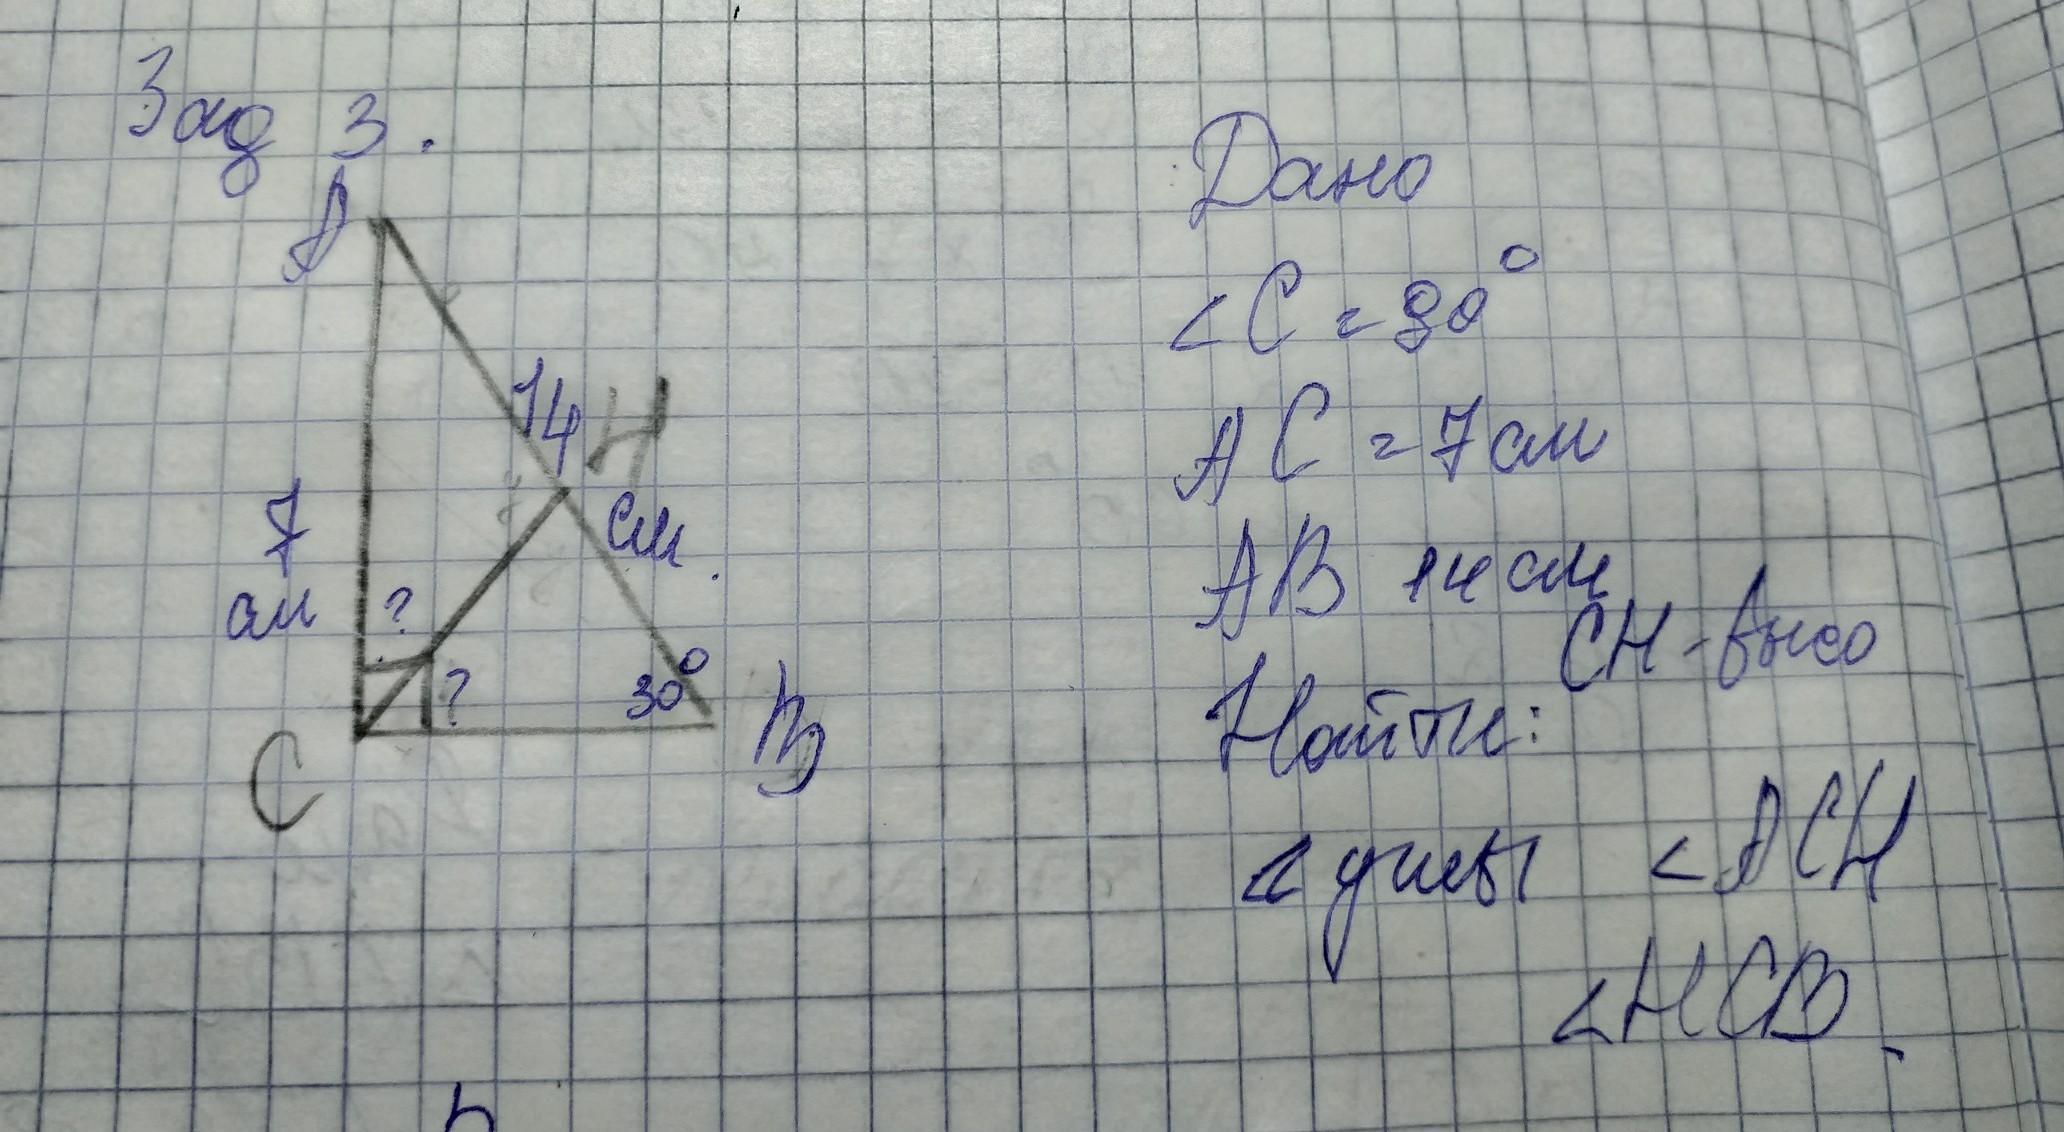 Зад 3.
A
14
H
7
см
см.
?
?
30°
C
B
Дано
<C = 90°
AC = 7 см
AB 14 см
CH - высо
Найти:
< углы <ACH
<HCB